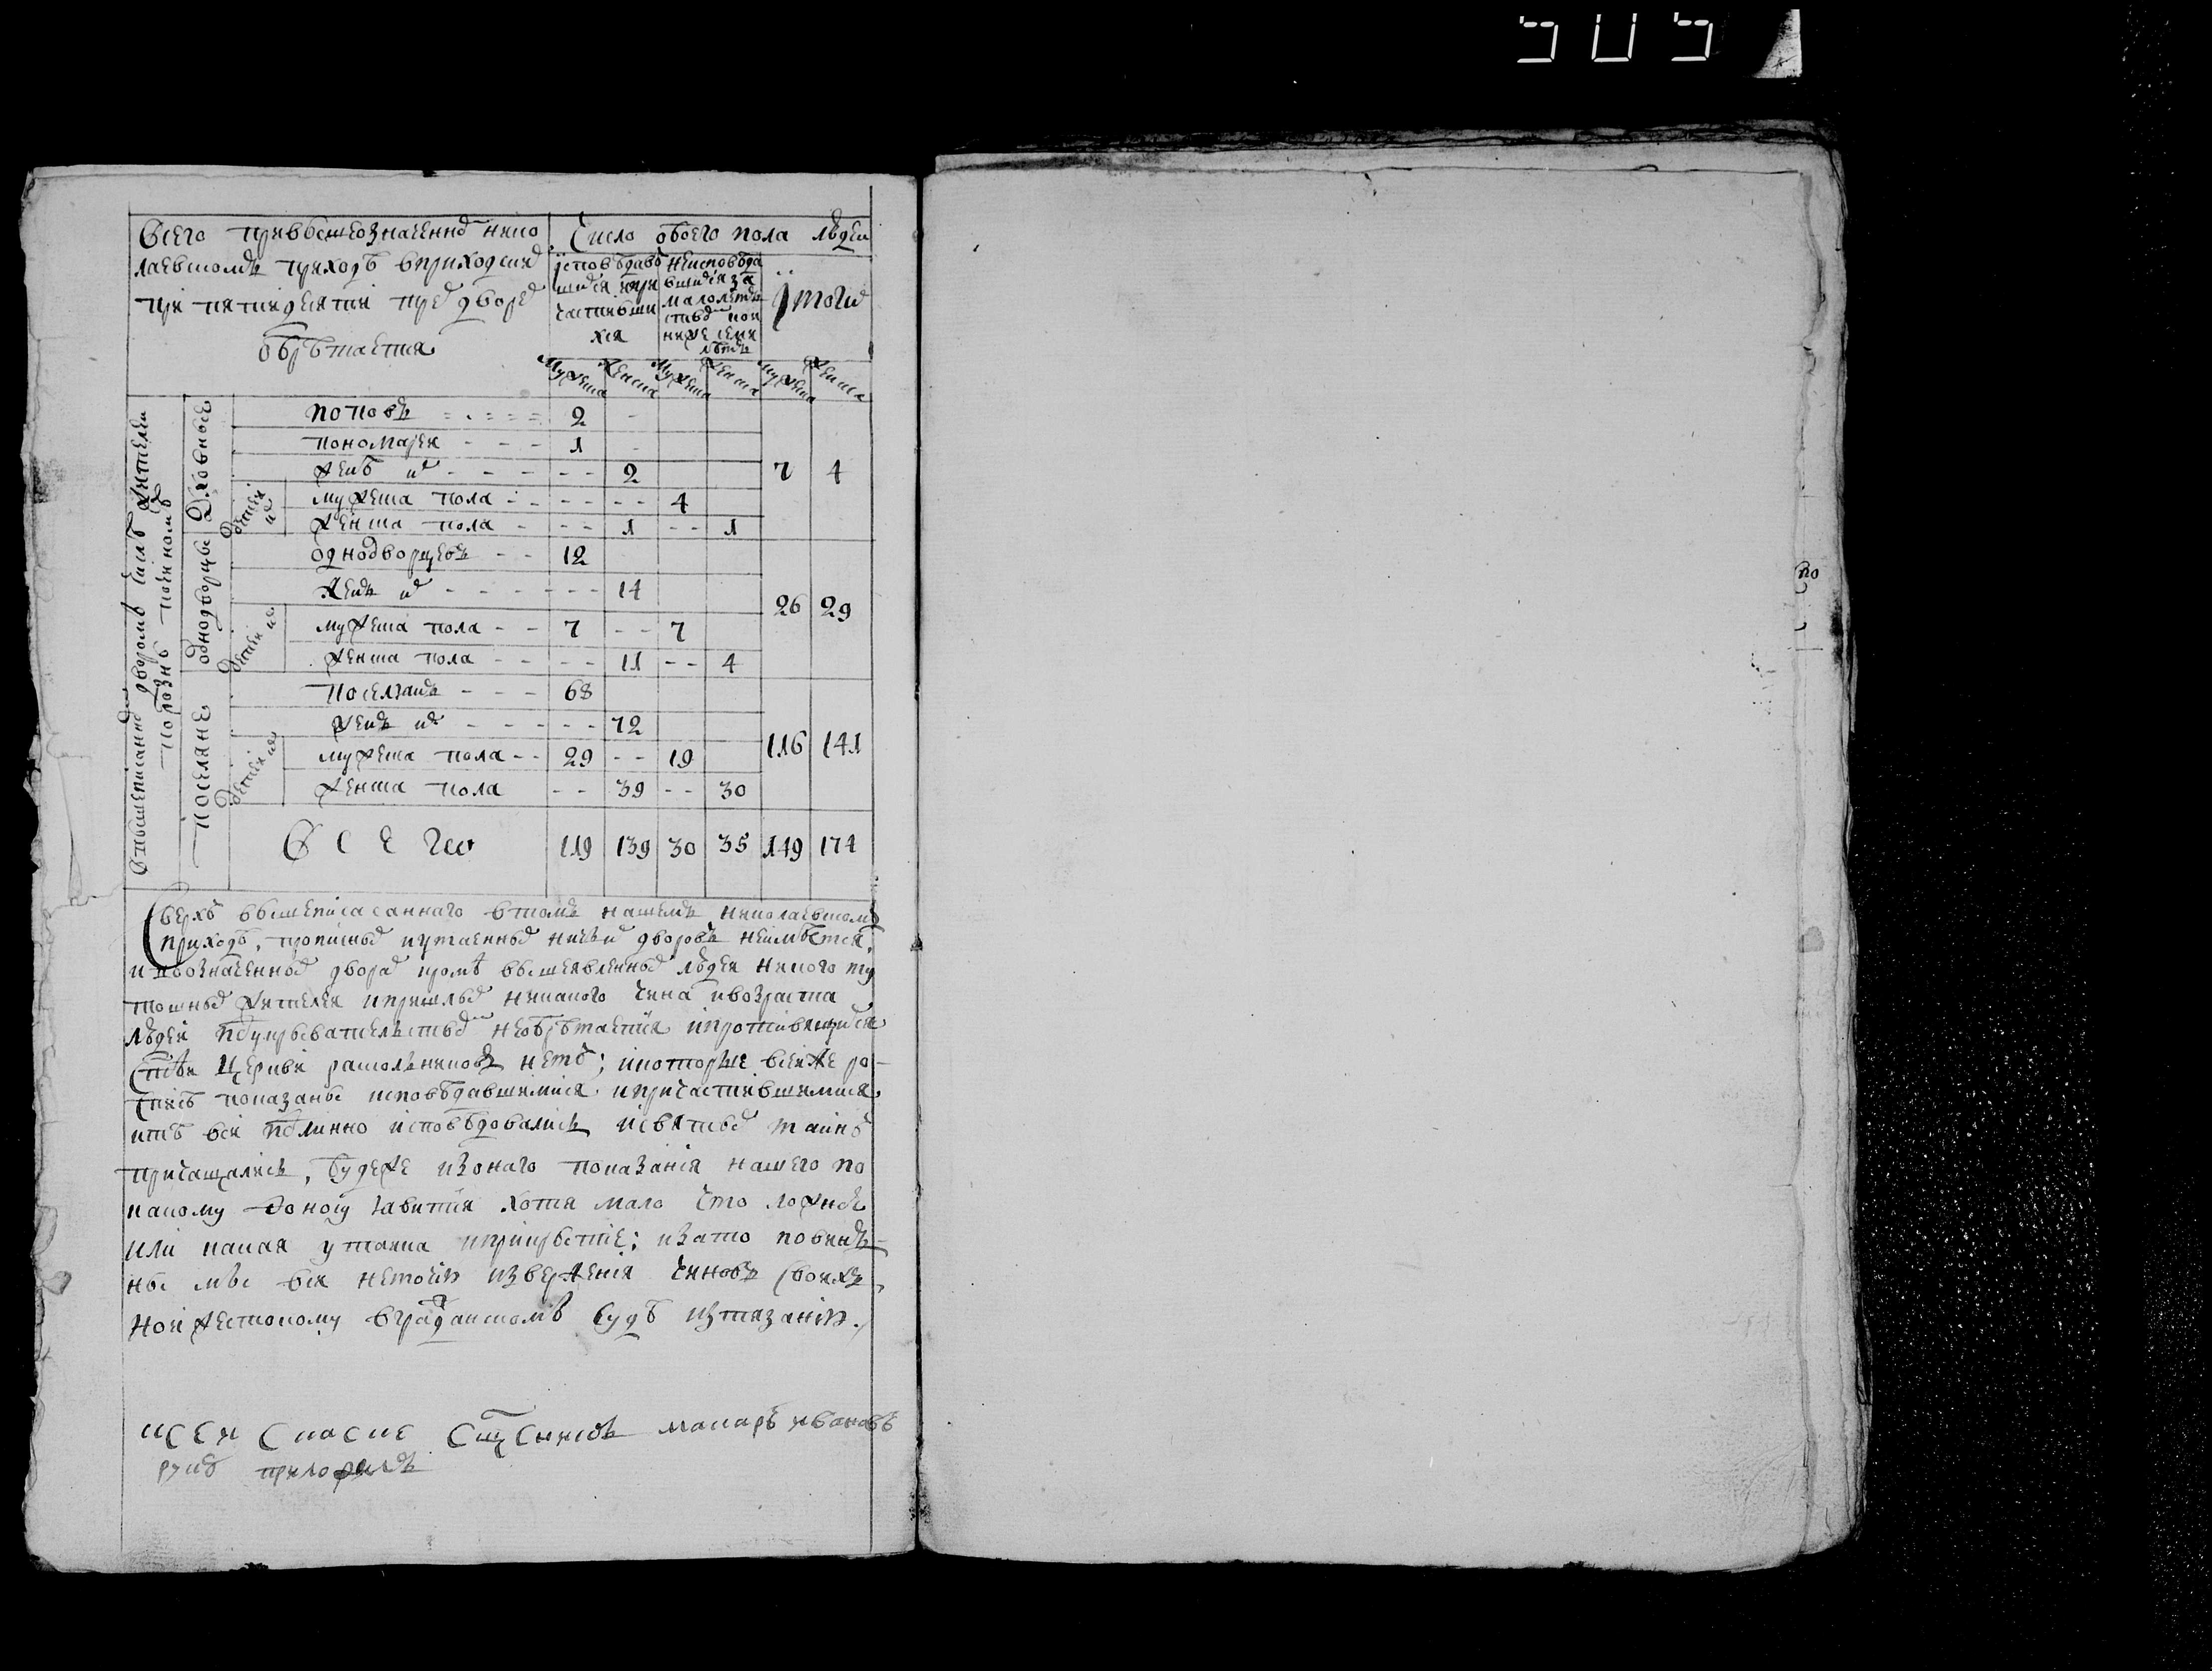 505
Всего при вышеозначенной нико
лаевском приходѣ вприходских
три пятидесяти трех дворех
обрѣтается
Число обоего пола людеи
исповѣдавъ
шихся ипри
частивши
хся
неисповѣда
вшихся за
малолѣтъ
ствомъ пон
ниже семи
лѣтъ
Итого
мужеска женска мужеска женска мужеска женска
Вышеписанных дворомъ числѣ жители
порознь поименно
Духовные
поповъ 2
пономарей 1
женъ их 2 7 4
детей их
мужеска пола 4
женска пола 1 1
однодворцы
однодворцовъ 12
женъ их 14 26 29
детей их
мужеска пола 7 7
женска пола 11 4
поселяне
поселянъ 68
женъ их 72 116 141
детей их
мужеска пола 29 19
женска пола 39 30
Всего 119 139 30 35 149 174
Сверхъ вышеписасаннаго втомъ нашемъ николаевском
приходѣ, прописных иутаенных ничьих дворовъ неимѣтся,
ивозначенных дворах кромѣ вышеявленных людеи никого ту
тошных жителеи ипришлых никакого чина ивозраста
людеи поукрывательствомъ необрѣтается ипротивящихся
стѣи церкви раскольниковъ нетъ; икоторые всеиже ро-
списѣ показаны исповѣдавшимися ипричастившимися
итѣ вси подлинно исповѣдовались исвятых таинъ
причащались, будеже изонаго показанія нашего по
какому доносу явится хотя мало что ложное
или какая утаика иприкрытіе; изато повинъ-
ны мы вси неточию изверженія чиновъ своихъ,
нои жестокому вгражданскомъ судѣ изтязанію.
ксеи Сказке Сщенникъ макаръ ивановъ
руку приложилъ
по